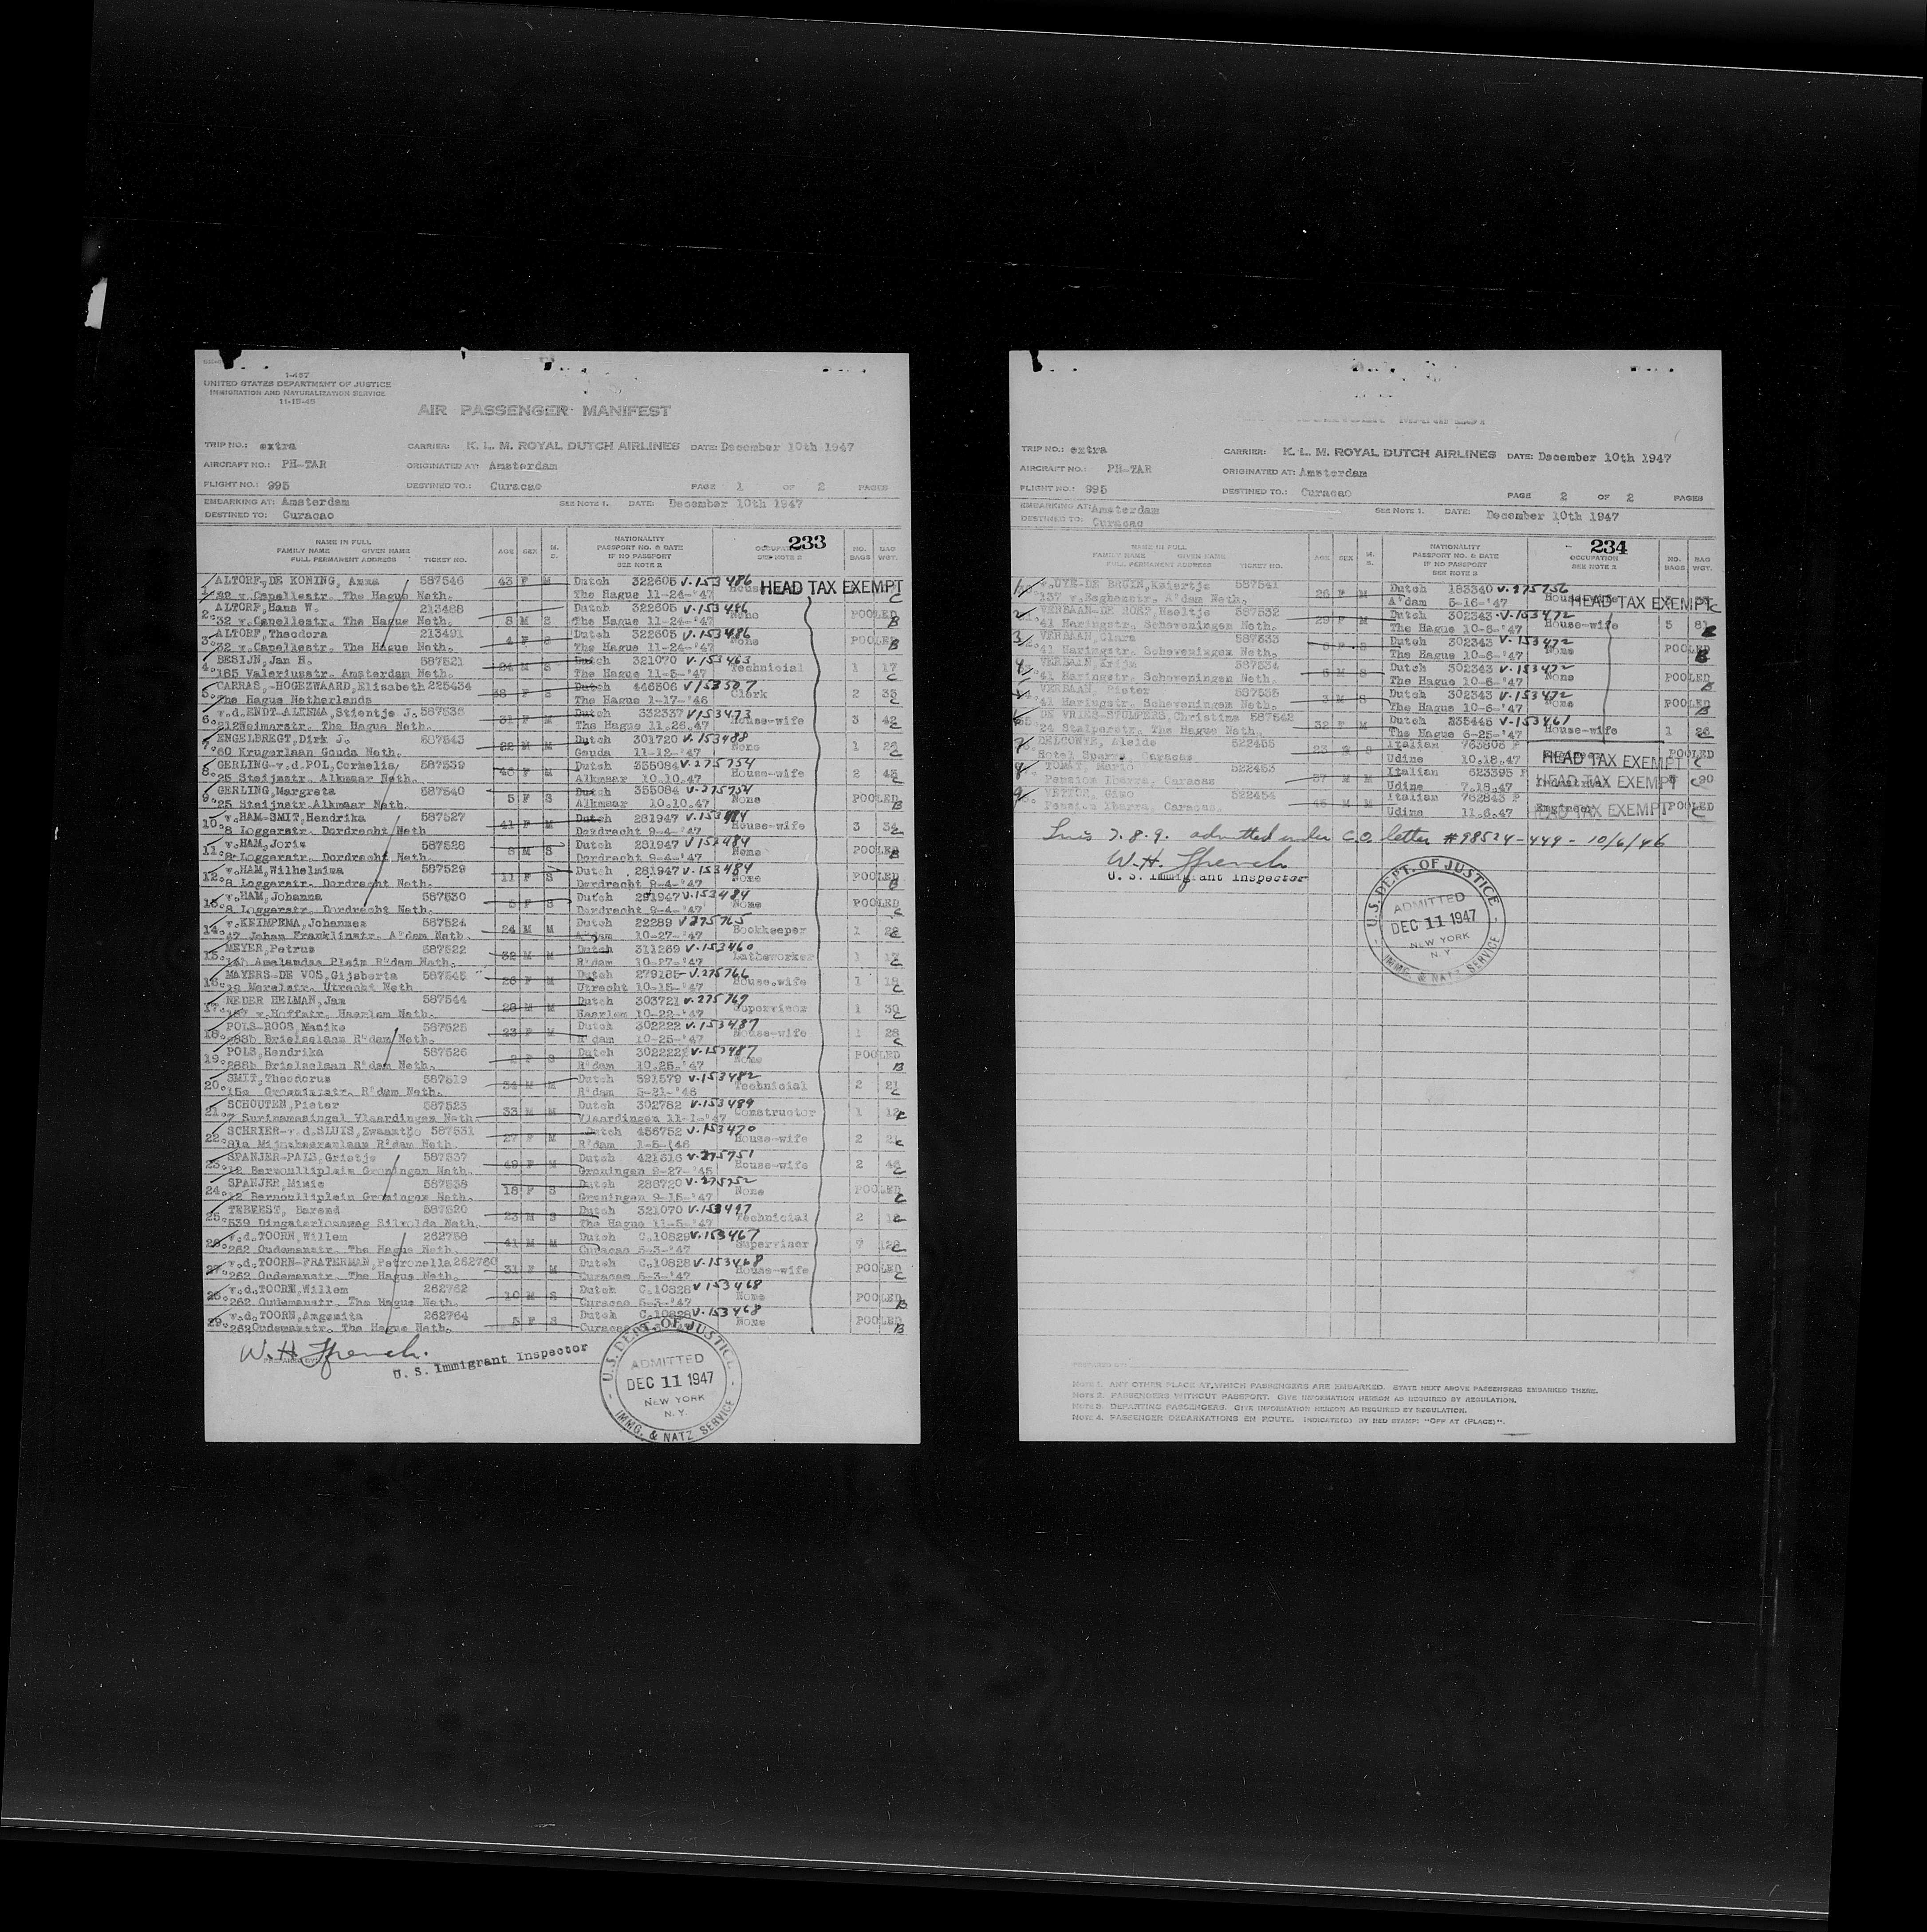 1-467
UNITED STATES DEPARTMENT OF JUSTICE
IMMIGRATION AND NATURALIZATION SERVICE
11-15-45
AIR PASSENGER MANIFEST
TRIP NO.: extra CARRIER: K. L. M. ROYAL DUTCH AIRLINES DATE: December 10th 1947
AIRCRAFT NO.: PH-TAR ORIGINATED AT: Amsterdam
FLIGHT NO.: 995 DESTINED TO.: Curacao PAGE 1 OF 2 PAGES
EMBARKING AT: Amsterdam SEE NOTE 1. DATE: December 10th 1947
DESTINED TO: Curacao
233
NAME IN FULL
FAMILY NAME GIVEN NAME
FULL PERMANENT ADDRESS TICKET NO. AGE SEX M. S. NATIONALITY PASSPORT NO. & DATE IF NO PASSPORT SEE NOTE 2 OCCUPATION SEE NOTE 2 NO. BAGS BAG WGT.
HEAD TAX EXEMPT
ALTORF, DE KONING, Anna 587546 43 F M Dutch 322605 V.153486
1. 32 v. Capellestr. The Hague Neth. The Hague 11-24-'47 C
ALTORF, Hans W. 213488 Dutch 322605 V.153486 None POOLED
2. 32 v. Capellestr. The Hague Neth. 8 M S The Hague 11-24-'47 B
ALTORF, Theodora 213491 4 F S Dutch 322605 V.153486 None POOLED
3. 32 v. Capellestr. The Hague Neth. The Hague 11-24-'47 B
BESIJN, Jan H. 587521 24 M S Dutch 321070 V.153463 Technicial 1 17
4. 165 Valeriusstr. Amsterdam Neth. The Hague 11-5-'47 C
CARRAS,-HOGEZWAARD, Elisabeth 225434 38 F S Dutch 446506 V153507 Clerk 2 35
5. The Hague Netherlands The Hague 1-17-'46 C
v.d. ENDT-ALKEMA, Stientje J. 587535 31 F M Dutch 332337 V153473 House-wife 3 42
6. 212 Weimarstr. The Hague Neth. The Hague 11.26.47 C
ENGELBREGT, Dirk J. 587543 22 M M Dutch 301720 V.153488 None 1 22
7. 60 Krugerlaan Gouda Neth. Gouda 11-12-'47 C
GERLING-v.d. POL, Cornelia 587539 46 F M Dutch 355084 V.275754 House-wife 2 45
8. 25 Steijnstr. Alkmaar Neth. Alkmaar 10.10.47 C
GERLING, Margreta 587540 5 F S Dutch 355084 V.275754 None POOLED
9. 25 Steijnstr. Alkmaar Neth. Alkmaar 10.10.47 B
v. HAM-SMIT, Hendrika 587527 41 F M Dutch 281947 V.153484 House-wife 3 34
10. 8 Loggerstr. Dordrecht Neth Dordrecht 9-4-'47 C
v. HAM, Joris 587528 8 M S Dutch 281947 V153484 None POOLED
11. 8 Loggerstr. Dordrecht Neth. Dordrecht 9-4-'47 B
v. HAM, Wilhelmina 587529 11 F S Dutch 281947 V.153484 None POOLED
12. 8 Loggerstr. Dordrecht Neth. Dordrecht 9-4-'47 B
v. HAM, Johanna 587530 F S Dutch 281947 V.153484 None POOLED
13. 8 Loggerstr. Dordrecht Neth. Dordrecht 9-4-'47
v. KEIMPEMA, Johannes 587524 24 M M Dutch 22289 V275765 Bookkeeper 1 22
14. 47 Johan Franklinstr. A'dam Neth. A'dam 10-27-'47 C
MEYER, Petrus 587522 32 M M Dutch 311269 V.153460 Latheworker 1 17
15. Amelandse Plein R'dam Neth. R'dam 10-27-'47 C
MAYERS-DE VOS, Gijsberta 587545 26 F M Dutch 279185 V.275766 House-wife 1 19
16. Merelstr. Utrecht Neth Utrecht 10-15-'47 C
REDER HELMAN, Jan 587544 28 M M Dutch 303721 V.275769 Supervisor 1 30
17. v. Hoffstr. Haarlem Neth. Haarlem 10-22-'47 C
POLS-ROOS, Maaike 587525 23 F M Dutch 302222 V.153487 House-wife 1 28
18. 288b Brielselaan R'dam Neth. R'dam 10-25-'47 C
POLS, Hendrika 587526 2 F S Dutch 302222 V.153487 None POOLED
19. 288b Brielselaan R'dam Neth. R'dam 10.25.'47 B
SMIT, Theodorus 587519 34 M M Dutch 591579 V.153482 Technicial 2 21
20. 15a Groenixstr. R'dam Neth. R'dam 5-21-'46 C
SCHOUTEN, Pieter 587523 33 M M Dutch 302782 V.153489 Constructor 1 12
21. 7 Surinamesingel Vlaardingen Neth. Vlaardingen 11-1-'47 C
SCHRIER-v.d. SLUIS, Zwaantje 587531 27 F M Dutch 456752 V.153470 House-wife 2 21
22. 81a Mijnsheerenlaan R'dam Neth. R'dam 1-5-'46 C
SPANJER-PALS, Grietje 587537 49 F M Dutch 421616 V.275751 House-wife 2 48
23. 12 Bernoulliplein Groningen Neth. Groningen 9-27-'45 C
SPANJER, Minie 587538 18 F S Dutch 288720 V.275752 None POOLED
24. 12 Bernoulliplein Groningen Neth. Groningen 9-15-'47 C
TEBEEST, Barend 587520 23 M S Dutch 321070 V.153497 Technicial 2
25. 539 Dingsterlooweg Silvolde Neth. The Hague 11-5-'47 C
v.d. TOORN, Willem 262758 41 M M Dutch C.10829 V.153467 Supervisor 7 128
26. 262 Oudemanstr. The Hague Neth. Curacao 5-3-'47 C
v.d. TOORN-FRATERMAN, Petronella 262760 31 F M Dutch C.10828 V.153468 House-wife POOLED
27. 262 Oudemanstr. The Hague Neth. Curacao 5-3-'47 C
v.d. TOORN, Willem 262762 10 M S Dutch C.10828 V153468 None POOLED
28. 262 Oudemanstr. The Hague Neth. Curacao 5-3-'47 B
v.d. TOORN, Angenita 262764 5 F S Dutch C.10828 V.153468 None POOLED
29. 262 Oudemanstr. The Hague Neth. Curacao B
W. H. Ffrench.
U. S. Immigrant Inspector
U.S. DEPT. OF JUSTICE
ADMITTED
DEC 11 1947
NEW YORK
N.Y.
IMMG. & NATZ. SERVICE
TRIP NO.: extra CARRIER: K. L. M. ROYAL DUTCH AIRLINES DATE: December 10th 1947
AIRCRAFT NO.: PH-TAR ORIGINATED AT: Amsterdam
FLIGHT NO.: 995 DESTINED TO.: Curacao PAGE 2 OF 2 PAGES
EMBARKING AT: Amsterdam SEE NOTE 1. DATE: December 10th 1947
DESTINED TO: Curacao
234
NAME IN FULL
FAMILY NAME GIVEN NAME
FULL PERMANENT ADDRESS TICKET NO. AGE SEX M. S. NATIONALITY PASSPORT NO. & DATE IF NO PASSPORT SEE NOTE 2 OCCUPATION SEE NOTE 2 NO. BAGS BAG WGT.
v. UYE-DE BRUYN, Keiertje 587541 26 F M Dutch 183340 V.275756 HEAD TAX EXEMPT
137 v. Esghenstr. A'dam Neth. A'dam 5-16-'47 C
VERBAAN-DE ROEF, Neeltje 587532 29 F M Dutch 302343 V.153472 House-wife 5 81
41 Haringstr. Scheveningen Neth. The Hague 10-6-'47
VERBAAN, Clara 587533 F S Dutch 302343 V.153472 None POOLED
41 Haringstr. Scheveningen Neth. The Hague 10-6-'47 B
VERBAAN, Krijn 587534 5 M S Dutch 302343 V.153472 None POOLED
41 Haringstr. Scheveningen Neth. The Hague 10-6-'47 B
VERBAAN, Pieter 587535 3 M S Dutch 302343 V.153472 None POOLED
41 Haringstr. Scheveningen Neth. The Hague 10-6-'47 B
DE VRIES-STOLPERS, Christina 587542 32 F M Dutch 235445 V.153461 House-wife 1 26
24 Stalperstr. The Hague Neth. The Hague 6-25-'47
DELCONTE, Aleide 522455 23 S Italian 763806 P HEAD TAX EXEMPT POOLED
Hotel Savoy, Caracas Udine 10.18.47 C
TOMAT, Mario 522453 37 M M Italian 623395 P HEAD TAX EXEMPT 90
Pension Ibarra, Caracas Udine 7.18.47 C
VETTOR, Gino 522454 46 M M Italian 762843 P Engineer HEAD TAX EXEMPT POOLED
Pension Ibarra, Caracas. Udine 11.6.47 C
Lines 7.8.9. admitted under C.O. letter #98524-449-10/6/46
W. H. Ffrench
U. S. Immigrant Inspector
U.S. DEPT. OF JUSTICE
ADMITTED
DEC 11 1947
NEW YORK
N.Y.
IMMG. & NATZ. SERVICE
NOTE 1. ANY OTHER PLACE AT WHICH PASSENGERS ARE EMBARKED. STATE NEXT ABOVE PASSENGERS EMBARKED THERE.
NOTE 2. PASSENGERS WITHOUT PASSPORT. GIVE INFORMATION HEREON AS REQUIRED BY REGULATION.
NOTE 3. DEPARTING PASSENGERS. GIVE INFORMATION HEREON AS REQUIRED BY REGULATION.
NOTE 4. PASSENGER DEBARKATIONS EN ROUTE. INDICATE(D) BY RED STAMP: "OFF AT (PLACE)".